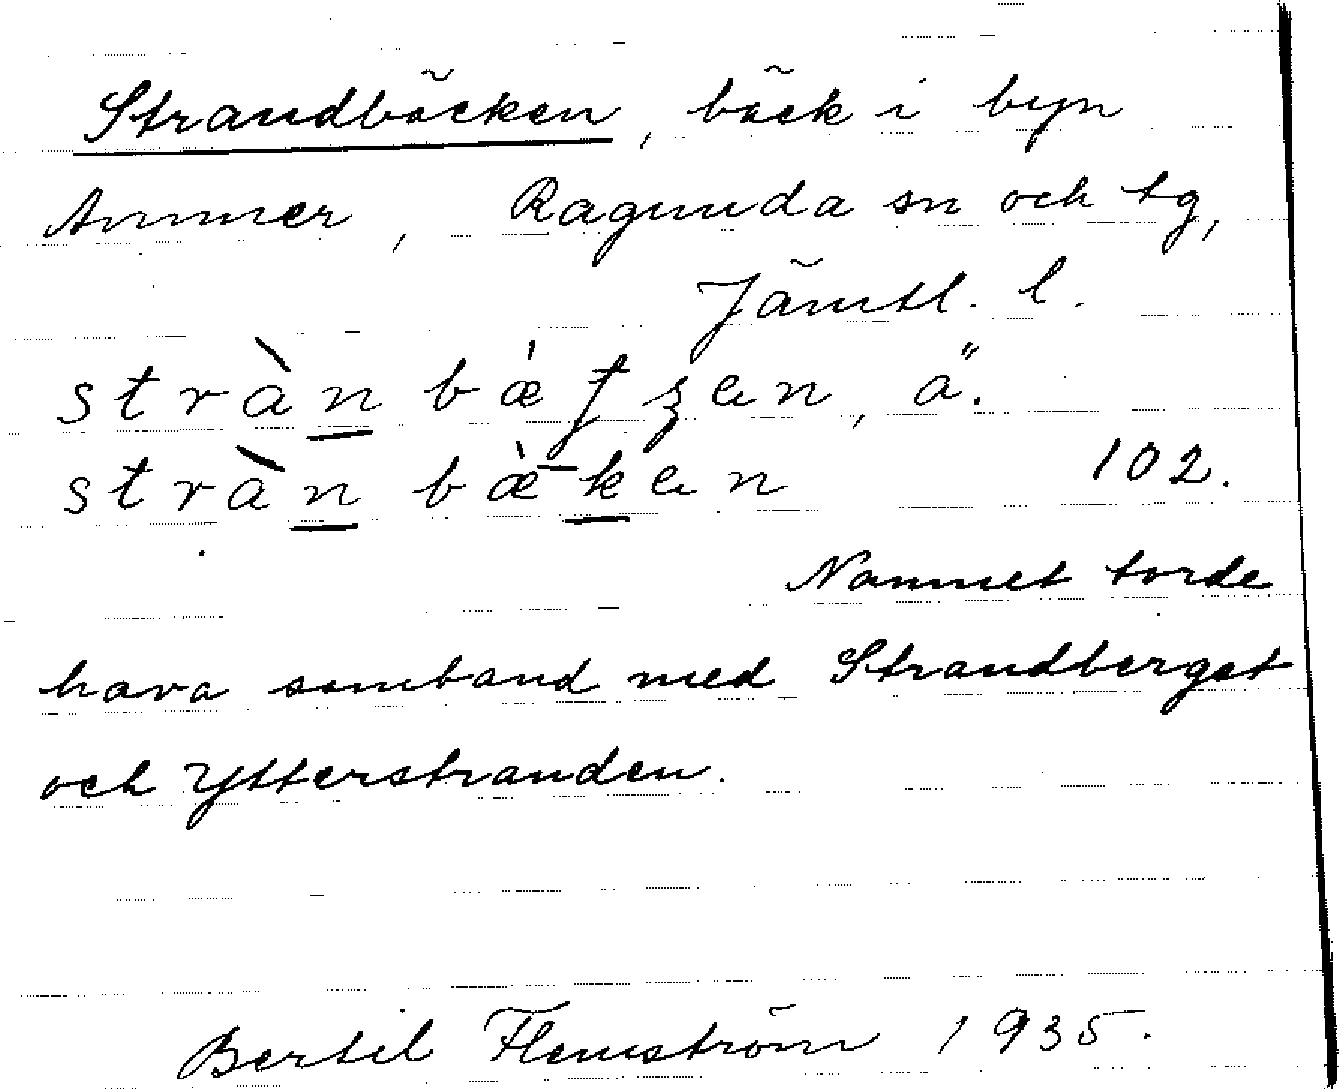 Strandbäcken, bäck i byn
Ammer, Ragunda sn och tg,
Jämtl. l.
stràn bæ̀ ʒen, ä.
stràn bæ̀ken 102.
Namnet torde
hava samband med Strandberget
och Ytterstranden.
Bertil Flemström 1935.